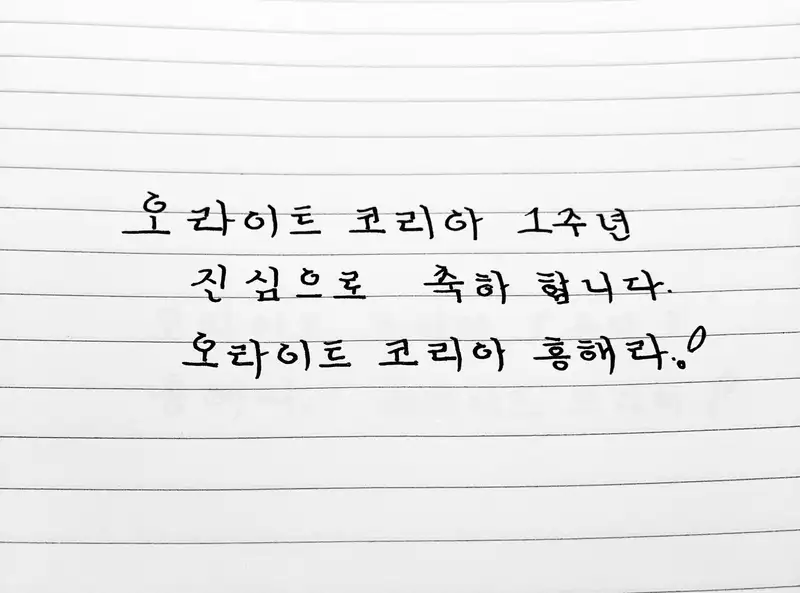 오라이트 코리아 1주년
진심으로 축하 합니다.
오라이트 코리아 흥해라!